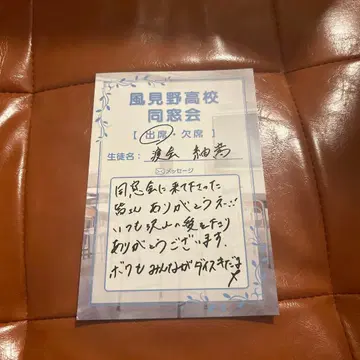 風見野高校
同窓会
【 出席・欠席 】
生徒名： 渡会 柚希
メッセージ
同窓会に来て下さった
皆さん ありがとうネ…!!
いつも沢山の愛を下たり
ありがとうございます。
ボクもみんながダイスキだよ